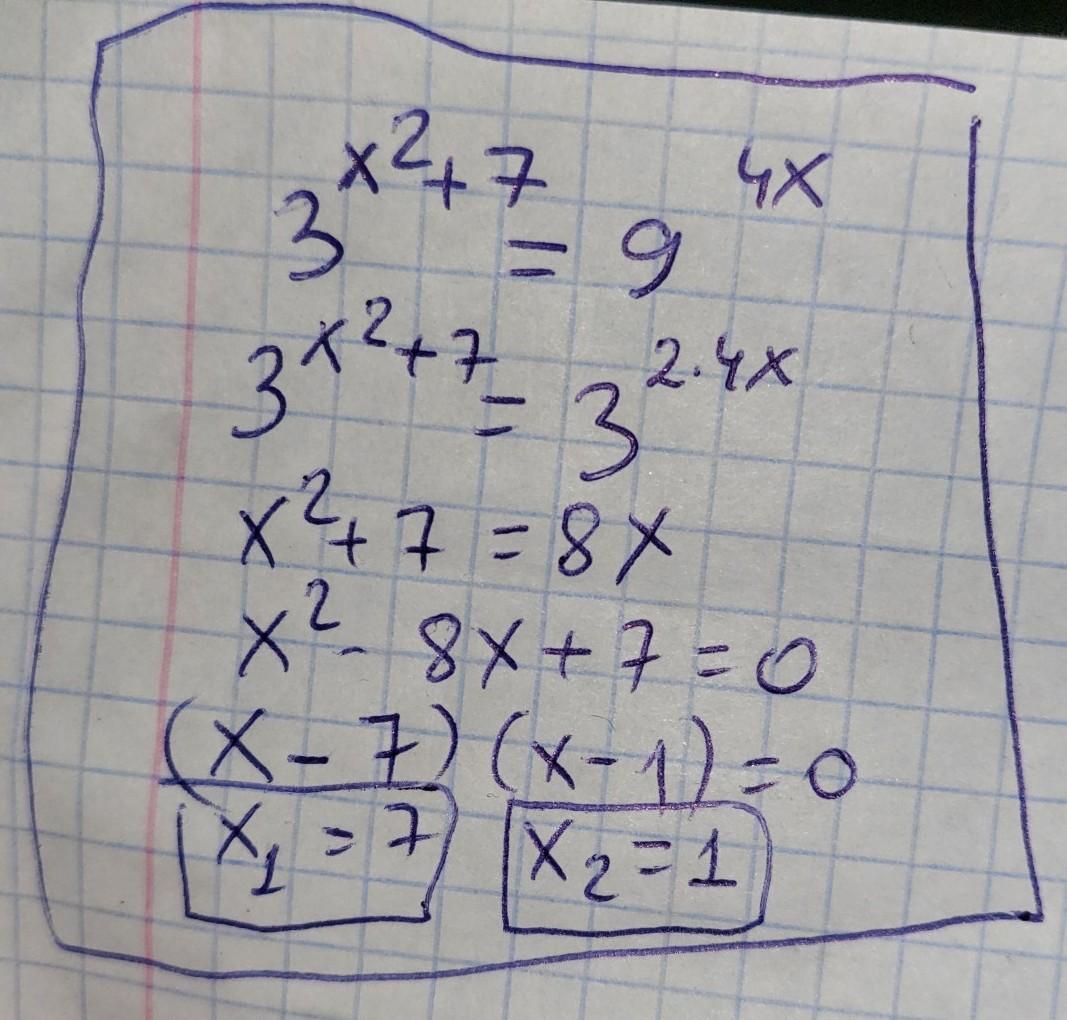 3^{x^2+7} = 9^{4x}
3^{x^2+7} = 3^{2·4x}
x^2+7=8x
x^2-8x+7=0
(x-7)(x-1)=0
x_1=7 x_2=1